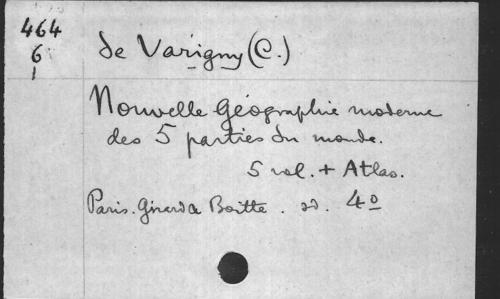 464
6
1
de Varigny (C.)
Nouvelle Géographie moderne
des 5 parties du monde.
5 vol. + Atlas.
Paris. Girard & Boitte. sd. 4º